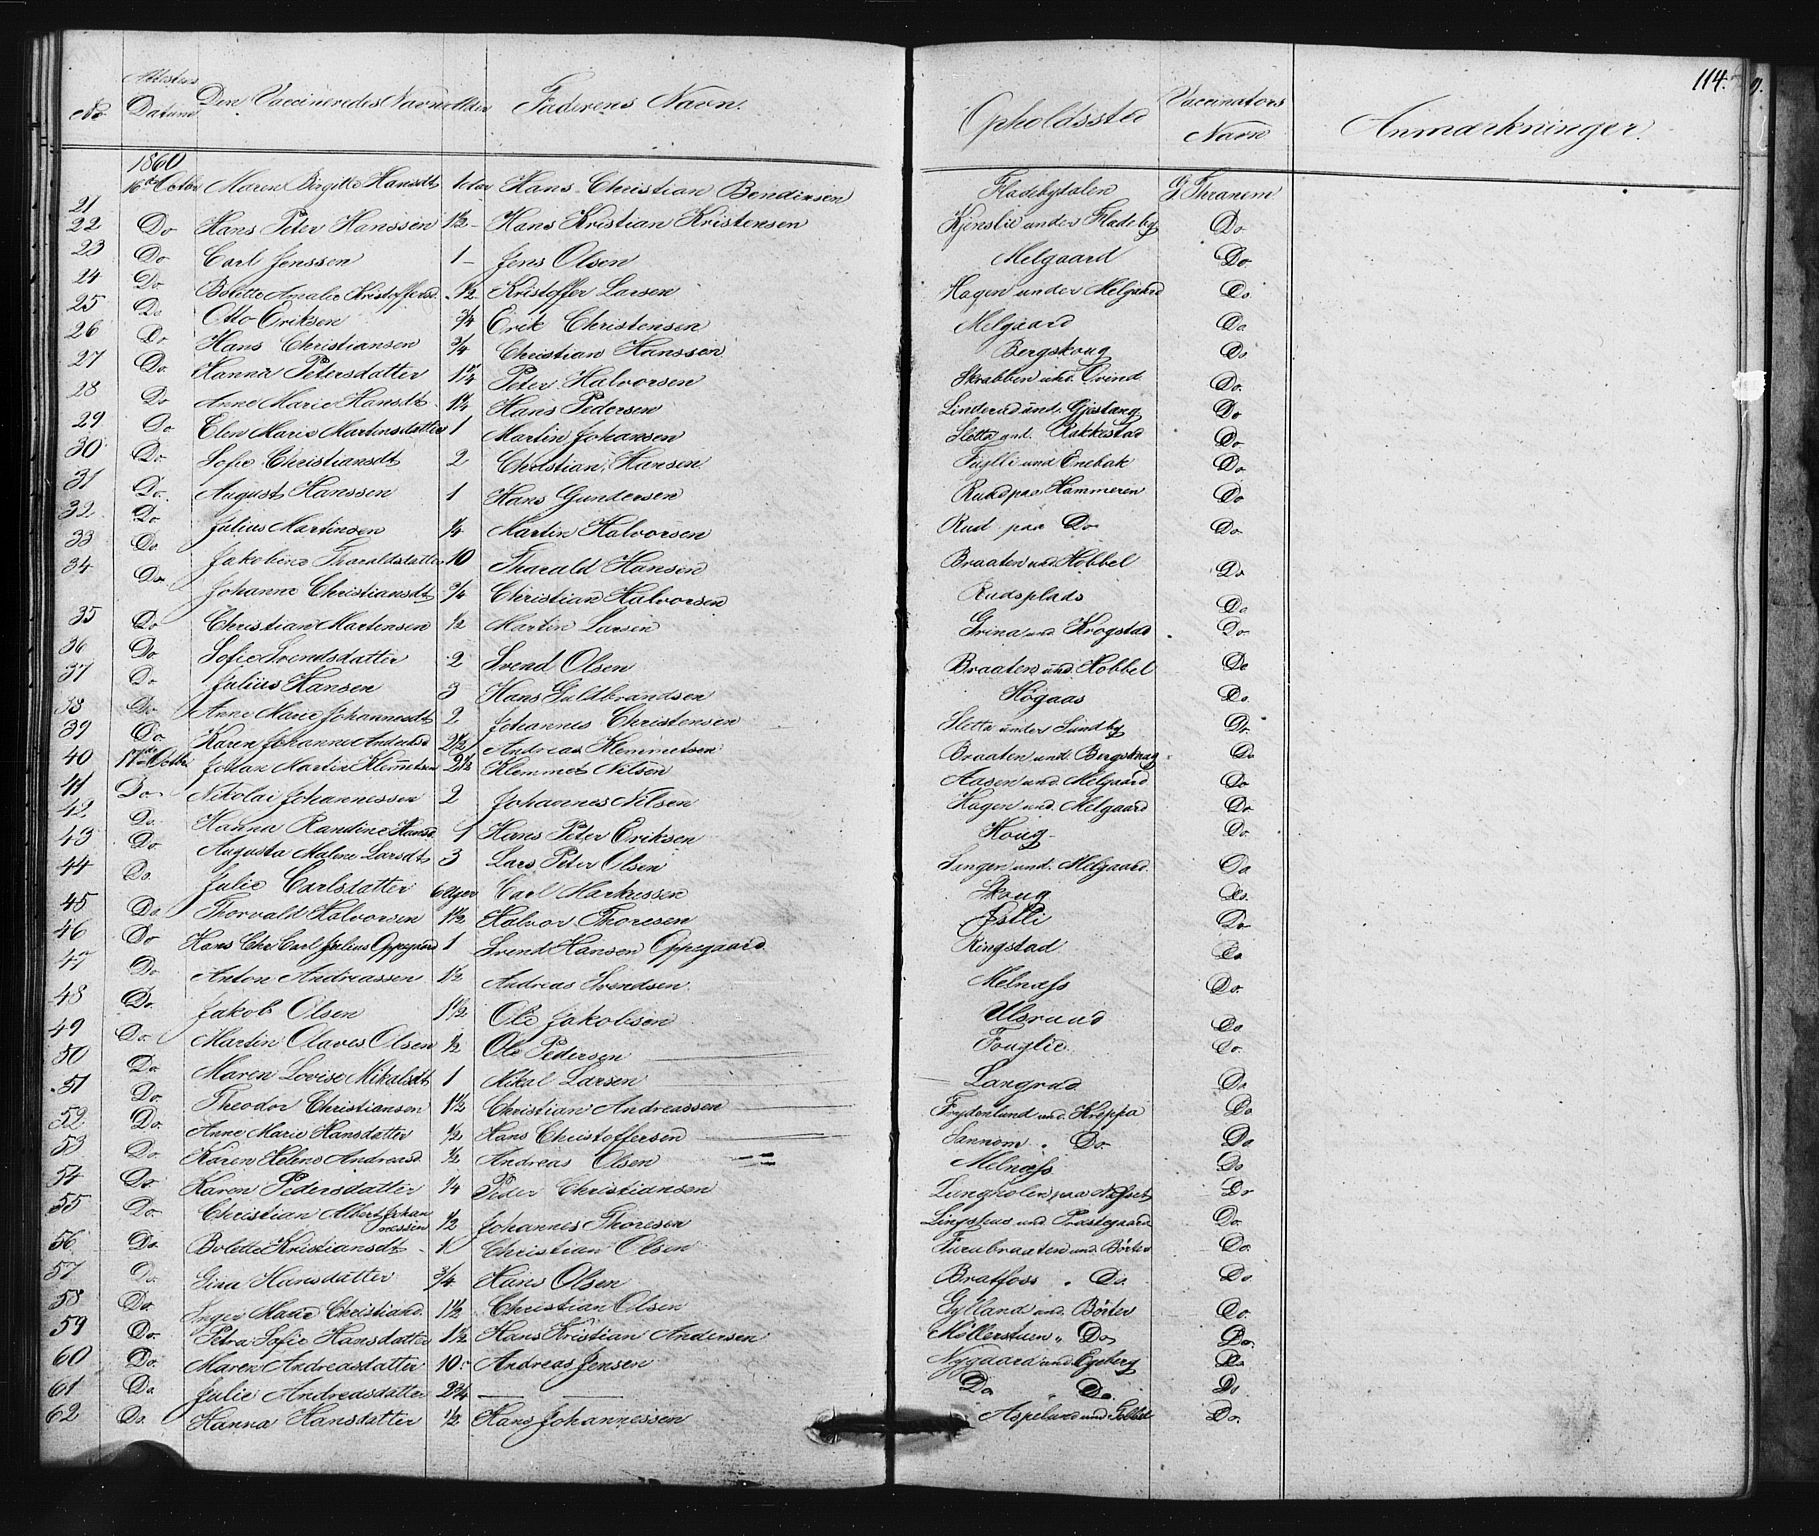 114.
No Attestens Datum Den Vaccineredes Navn Alder Faderens Navn. Opholdssted Vaccinators Navn Anmærkninger.
1860
21 16de Octbr Maren Birgitte Hansdt 1 Hans Christian Bendixsen Fladebydalen G. Thranem
22 Do Hans Peter Hanssen 1½ Hans Kristian Kristensen Kjenslie under Fladeby Do
23 Do Carl Jenssen 1 Jens Olsen Melgaard Do.
24 Do Bolette Amalie Kristoffersd. ½ Kristoffer Larsen Hagen under Melgaard Do
25 Do Otto Eriksen ¾ Erik Christensen Melgaard Do
26 Do Hans Christiansen ¾ Christian Hanssen Bergskoug Do
27 Do. Hanna Petersdatter 1¼ Peter Halvorsen Skrabben und. Qvind Do.
28 Do Anne Marie Hansdt. 1¼ Hans Pedersen Linderud und. Gjestang Do
29 Do Elen Marie Martinsdatter 1 Martin Johansen Sletta und. Rakkestad Do
30 Do. Sofie Christiansdt 2 Christian Hansen und Enebak Do
31 Do. August Hanssen 1 Hans Gundersen Rud paa Hammeren Do
32 Do Julius Martinsen ¼ Martin Halvorsen Rud paa Do Do.
33 Do Jakobine Tharaldsdatter 10 Tharald Hansen Braaten und Hobbel Do
34 Do. Johanne Christiansdt ¾ Christian Halvorsen Rudsplads Do
35 Do Christian Martensen ½ Martin Larsen Grina und Krogstad Do.
36 Do. Sofie Svendsdatter 2 Svend Olsen Braaten und Hobbel Do
37 Do Julius Hansen 3 Hans Guldbrandsen Høgaas Do.
38 Do. Anne Marie Johannesdt 2 Johannes Christensen Sletta under Sundby Do
39 Do Karen Johanne Andersd 2½ Andreas Klemmetsen Braaten und Bergskoug Do
40 17de Octbr. Johan Martin Klemetsen 2½ Klemmet Nilsen Aasen und. Melgaard Do
41 Do Nikolai Johannessen 2 Johannes Nilsen Hagen und. Melgaard Do
42 Do Hanna Randine Hansd 1 Hans Peter Eriksen Houg Do.
43 Do Augusta Malene Larsdt 3 Lars Peter Olsen und. Melgaard. Do
44 Do. Julie Carlsdatter 6 Uger Carl Markussen Skoug Do.
45 Do Thorvald Halvorsen 1½ Halvor Thoresen Do
46 Do Hans Chr. Carl Julius Oppegaard 1 Svend Hansen Oppegaard Ringstad Do
47 Do Anton Andreassen 1½ Andreas Svendsen. Melnæss Do.
48 Do. Jakob Olsen 1½ Ole Jakobsen Ulsrud Do
49 Do. Martin Olaves Olsen ½ Ole Pedersen Fouglie Do.
50 Do. Maren Lovise Mikalsdt 1 Mikal Larsen Langrud Do
51 Do. Theodor Christiansen 1½ Christian Andreassen Frydenlund und. Kreppa Do
52 Do. Anne Marie Hansdatter ½ Hans Christoffersen Sannom " Do. Do
53 Do Karen Helene Andreasd. ½ Andreas Olsen Melnæss. Do
54 Do. Karen Pedersdatter ¼ Peder Christiansen paa Do
55 Do. Christian Albert Johannessen ½ Johannes Thoresen und Præstegaard Do.
56 Do Bolette Kristiansdt. 1 Christian Olsen Furubraaten und Børter Do.
57 Do. Gina Hansdatter ¾ Hans Olsen Bratfoss " Do. Do.
58 Do. Inger Marie Christiansd. 1½ Christian Olsen Gylland und. Børter Do.
59 Do. Petra Sofie Hansdatter 1½ Hans Kristian Andersen Møllerstuen " Do Do.
60 Do. Maren Andreasdatter 10 Andreas Jensen Nygaard und Egeberg Do
61 Do Julie Andreasdatter 2¾ — — Do " Do. Do
62 Do. Hanna Hansdatter ½ Hans Johannessen Aspelund und Do.